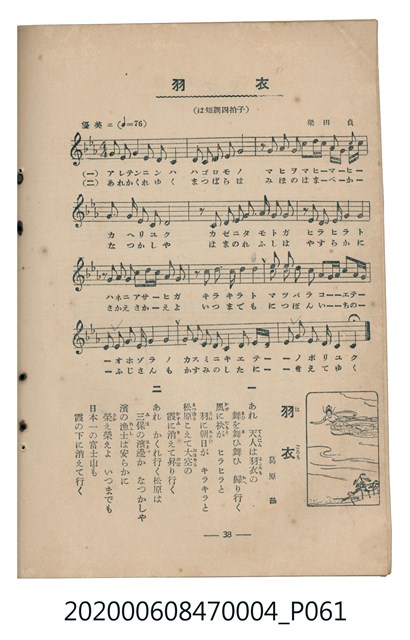 羽衣
(は短調四拍子)
優美ニ(♩=76)
梁田貞
(一)アレテンニン ハ ハゴロモノ マヒヲマヒーマーヒー
(二)あれかくれ ゆく まつばらは みほのはまーべーかー
カヘリユク カゼニタモトガ ヒラヒラト
なつかしや はまのれふしは やすらかに
ハネニアサーヒガ キラキラト マツバラコーエーテー
さかえさかーえよ いつまでも につぽんいーちーの
ーオホゾラノ カスミニキエテーーノボリユク
ーふじさんも かすみのしたにーーきえてゆく
羽衣
はごろも
葛原𦱳
一
あれ 天人は羽衣の
舞を舞ひ舞ひ 歸り行く
風に袂が ヒラヒラと
羽に朝日が キラキラと
松原こえて大空の
霞に消えて昇り行く
二
あれ かくれ行く松原は
三保の濱邊か なつかしや
濱の漁士は安らかに
榮え榮えよ いつまでも
日本一の富士山も
霞の下に消えて行く
— 38 —
202000608470004_P061